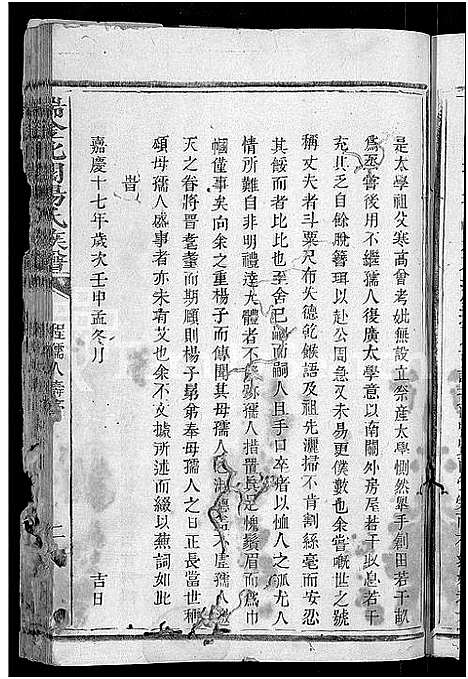 是太學祖父寒高曾考妣無設立祭產太學惻然舉手創田若干畝
為烝嘗後用不繼孺人復廣太學意以南關外房屋若干以息若干
充其乏自餘脫簪珥以赴公間急又未易更僕數也余嘗嘅世之號
稱丈夫者斗粟尺布失德乾餱語及祖先灑掃不肯割絲毫而安忍
其餒而者比比也至舍己嗣而嗣人且手口卒者以恤人之孤尤人
情所難自非明禮達大體者不孺人措置良足愧鬚眉而為巾
幗僅事矣向余之重楊子而傳聞其母孺人德不虛孺人
天之眷將晉耄耋而期頤則楊子昴弟奉母孺人之日正長當世之
頌母孺人盛事者亦未有艾也余不文據所述而綴以蕪詞如此
旹
嘉慶十七年歲次壬申孟冬月 吉日
瑞金北關楊氏族譜
程孺人壽序
二